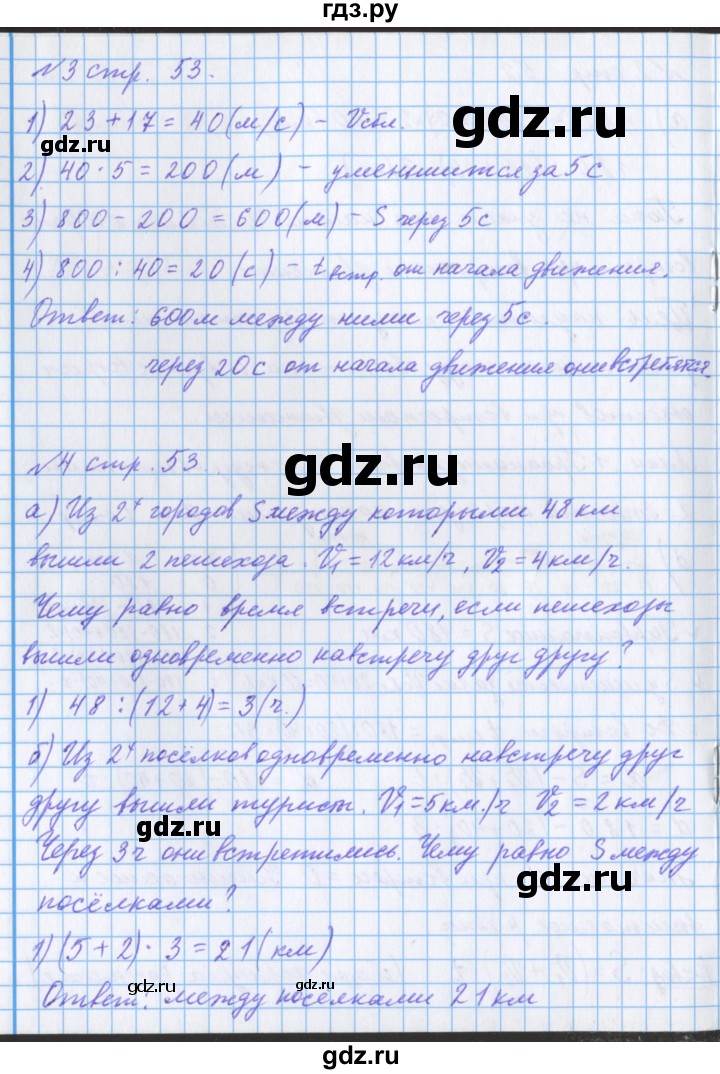 гдз.ру
№3 стр. 53.
1) 23 + 17 = 40 (м/с) - Vсбл.
gdz.ru
2) 40 · 5 = 200 (м) - уменьшится за 5 с
3) 800 - 200 = 600 (м) - S через 5 с
4) 800 : 40 = 20 (с) - t встр. от начала движения.
Ответ: 600 м между ними через 5 с.
через 20 с от начала движения они встретятся.
gdz.ru
№4 стр. 53.
а) Из 2х городов S между которыми 48 км
вышли 2 пешехода. V₁ = 12 км/ч, V₂ = 4 км/ч.
Чему равно время встречи, если пешеходы
вышли одновременно навстречу друг другу?
1) 48 : (12 + 4) = 3 (ч.)
б) Из 2х посёлков одновременно навстречу друг
другу вышли турист. V₁ = 5 км./ч V₂ = 2 км/ч
gdz.ru
Через 3 ч они встретились. Чему равно S между
gdz.ru
посёлками?
1) (5 + 2) · 3 = 21 (км)
Ответ: между поселками 21 км
gdz.ru